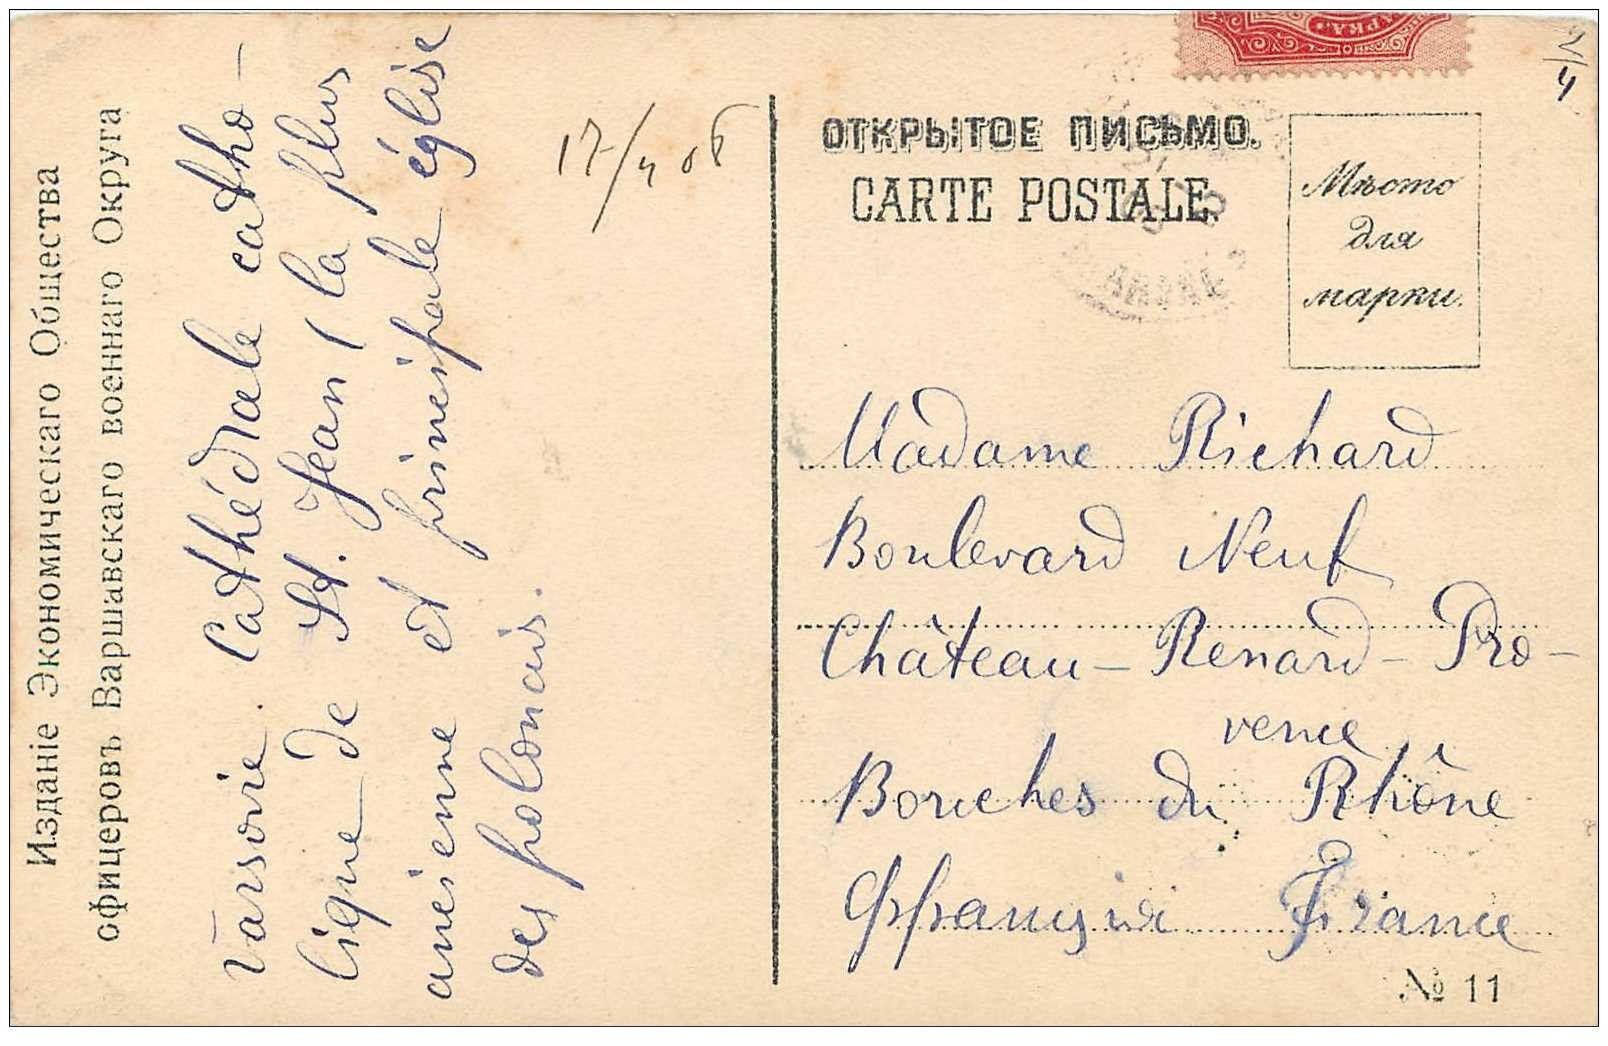 Изданіе Экономическаго Общества
офицеровъ Варшавскаго военнаго Округа
Varsovie. Cathédrale catho-
lique de St. Jean (la plus
ancienne et principale église
des polonais.
17/4 06
ОТКРЫТОЕ ПИСЬМО.
CARTE POSTALE.
Мѣсто
для
марки.
Madame Richard
Boulevard Neuf
Château-Renard-Pro-
vence
Bouches du Rhône
Франція France
№ 11